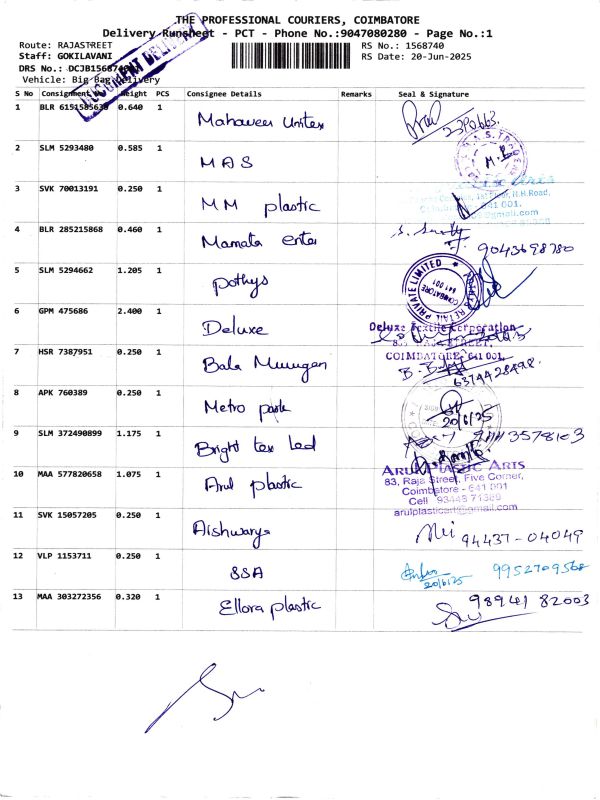 THE PROFESSIONAL COURIERS, COIMBATORE
Delivery Runsheet - PCT - Phone No.:9047080280 - Page No.:1
Route: RAJASTREET
RS No.: 1568740
Staff: GOKILAVANI
RS Date: 20-Jun-2025
DRS No.: DCJB1568740
Vehicle: Big Bag Delivery
DOCUMENT DELIVERY
S No Consignment No Weight PCS Consignee Details Remarks Seal & Signature
1 BLR 615158563 0.640 1 Mahaveer Unitex
2390663
2 SLM 5293480 0.585 1 M A S
3 SVK 70013191 0.250 1 M M plastic
1st Floor, N.H.Road,
641 001.
@gmail.com
4 BLR 285215868 0.460 1 Mamata enter
9043698780
5 SLM 5294662 1.205 1 Pothys
PRIVATE LIMITED
COIMBATORE
641 001
RETAIL
6 GPM 475686 2.400 1 Deluxe
Deluxe Textile Corporation
COIMBATORE - 641 001,
7 HSR 7387951 0.250 1 Bala Murugan
6374428498.
8 APK 760389 0.250 1 Metro park
20/6/25
9 SLM 372490899 1.175 1 Bright tex Led
10 MAA 577820658 1.075 1 Arul plastic
ARUL PLASTIC ARTS
83, Raja Street, Five Corner,
Coimbatore - 641 001
Cell : 93448 71389
arulplasticart@gmail.com
11 SVK 15057205 0.250 1 Aishwarya
94437-04049
12 VLP 1153711 0.250 1 SSA
20/6/25 9952709568
13 MAA 303272356 0.320 1 Ellora plastic
98941 82003